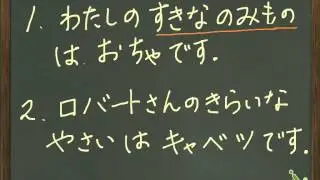 1. わたしの すきな のみもの
は おちゃです.
2. ロバートさんの きらいな
やさいは キャベツです.